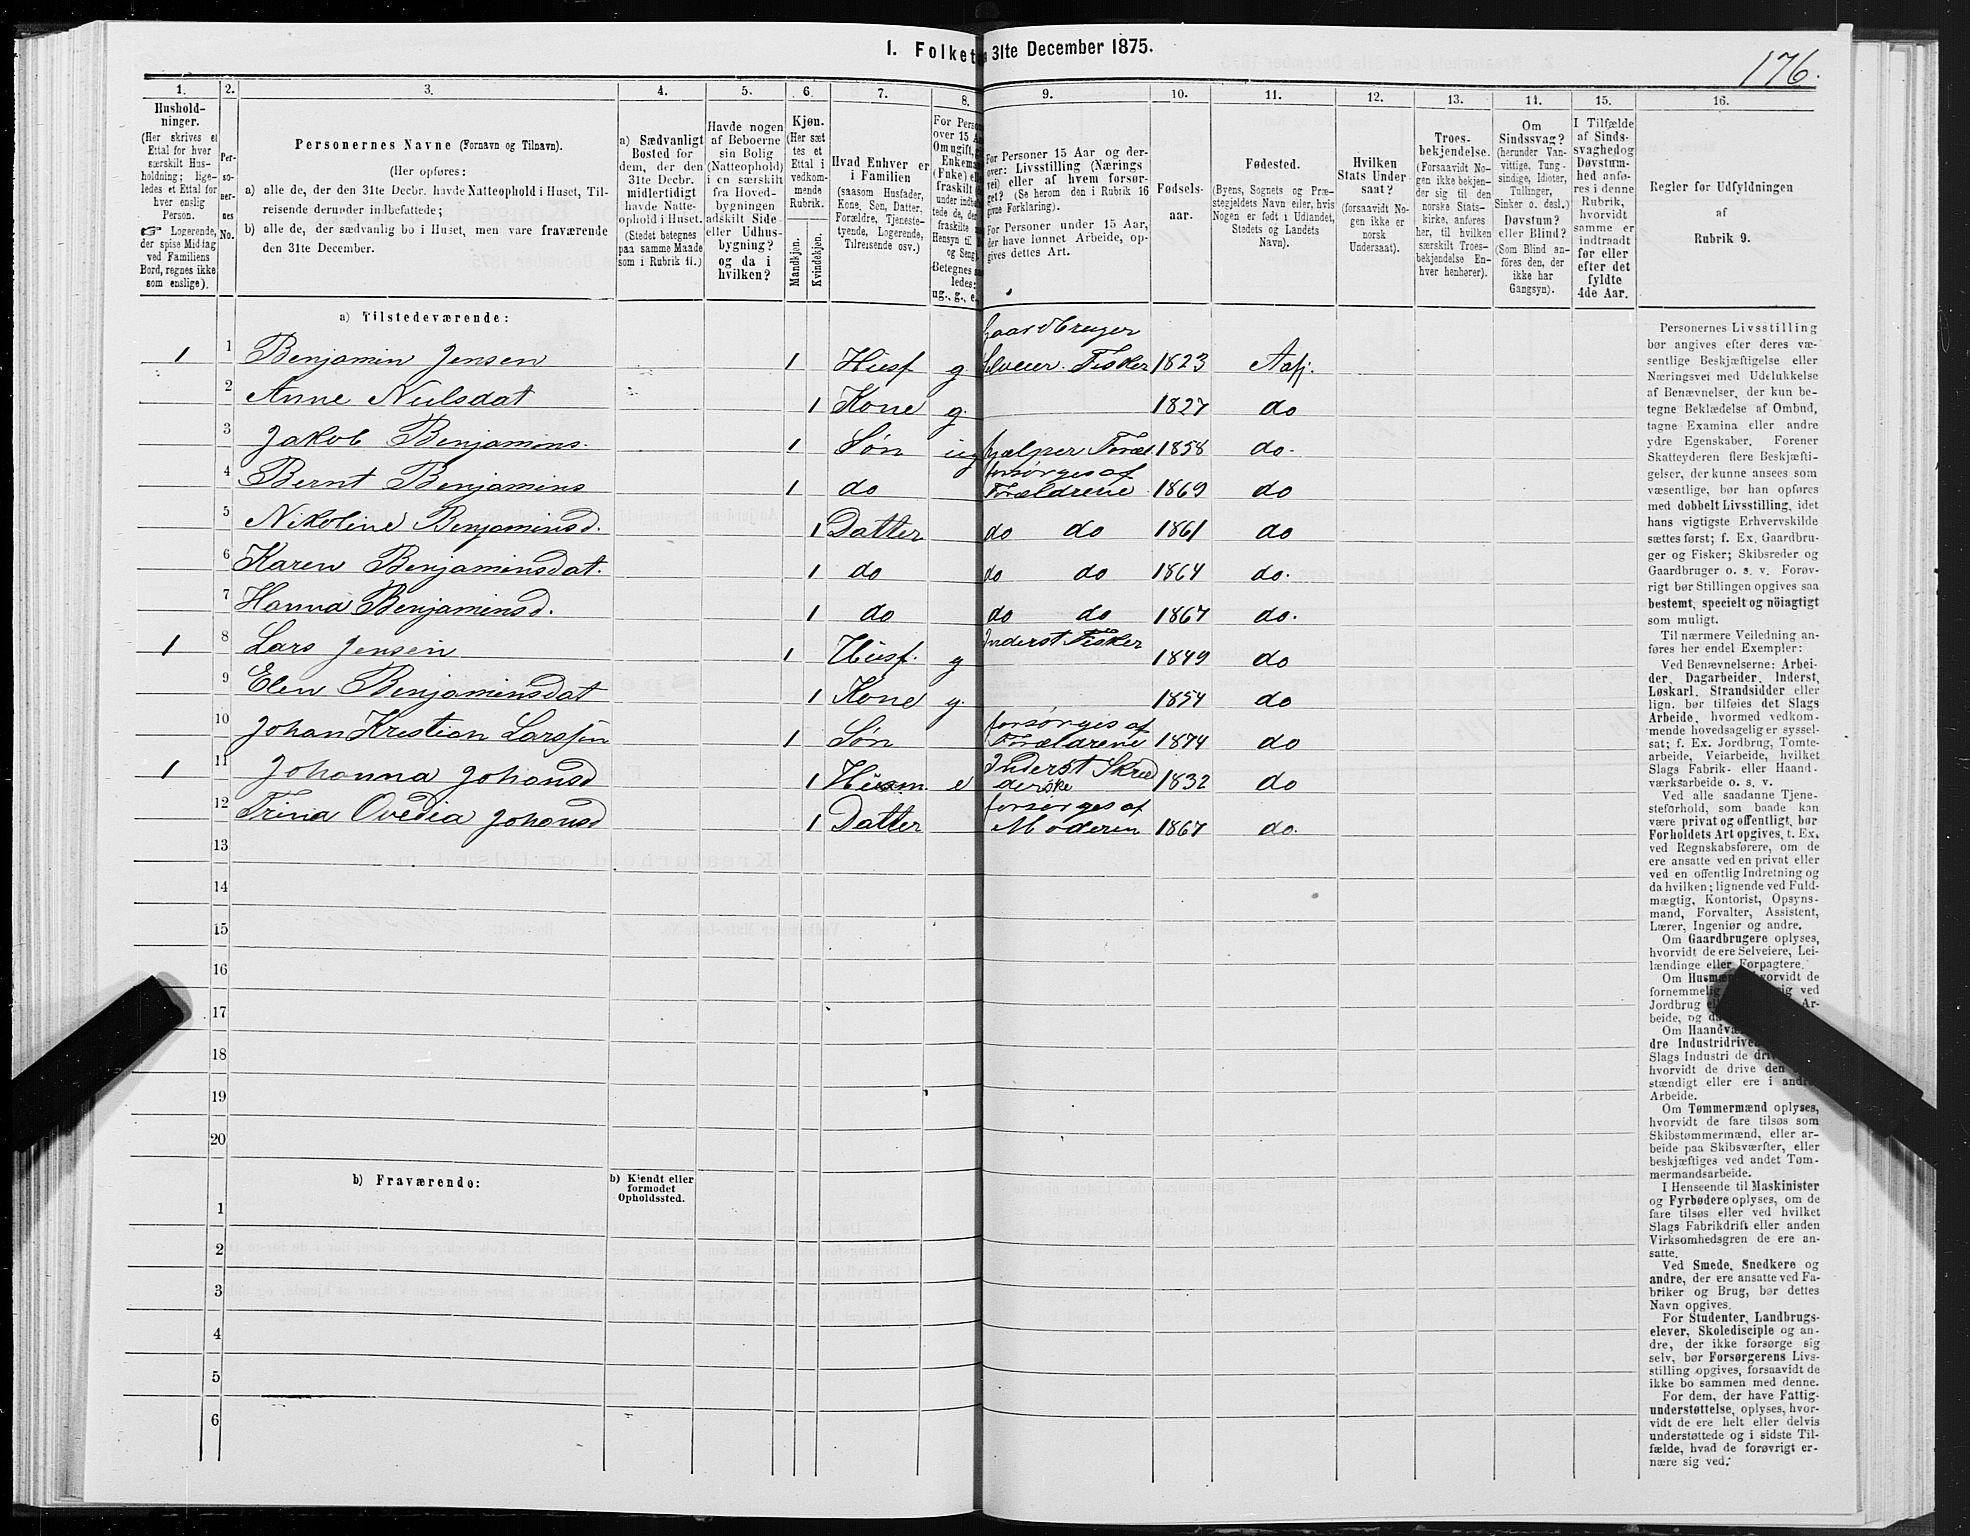 I. Folket 31te December 1875.
176.
1.
2.
3.
4.
5.
6.
7.
8.
9.
10.
11.
12.
13.
14.
15.
16.
Hushold-
ninger.
(Her skrives et
Ettal for hver
særskilt Hus-
holdning; lige-
ledes et Ettal for
hver enslig
Person.
☞ Logerende,
der spise Middag
ved Familiens
Bord, regnes ikke
som enslige).
Per-
so-
ner-
nes
No.
Personernes Navne (Fornavn og Tilnavn).
(Her opføres:
a) alle de, der den 31te Decbr. havde Natteophold i Huset, Til-
reisende derunder indbefattede;
b) alle de, der sædvanlig bo i Huset, men vare fraværende
den 31te December.
a) Sædvanligt
Bosted for
dem, der den
31te Decbr.
midlertidigt
havde Natte-
ophold i Huset.
(Stedet betegnes
paa samme Maade
som i Rubrik 11.)
Havde nogen
af Beboerne
sin Bolig
(Natteophold)
i en særskilt
fra Hoved-
bygningen
adskilt Side-
eller Udhus-
bygning?
og da i
hvilken?
Kjøn.
(Her sæt-
tes et
Ettal i
vedkom-
mende
Rubrik.
Mandkjøn.
Kvindekjøn.
Hvad Enhver er
i Familien
(saasom Husfader,
Kone, Søn, Datter,
Forældre, Tjeneste-
tyende, Logerende,
Tilreisende osv.)
For Person
over 15 A
Om ugift,
Enkeman
(Fnke) el
fraskilt
under indb
tede de,
fraskilte
Hensyn til
og Seng
Betegnes
ledes:
ug., g., e.
For Personer 15 Aar og der-
over: Livsstilling (Nærings-
vei) eller af hvem forsør-
get? (Se herom den i Rubrik 16
givne Forklaring).
For Personer under 15 Aar,
der have lønnet Arbeide, op-
gives dettes Art.
Fødsels-
aar.
Fødested.
(Byens, Sognets og Præ-
stegjeldets Navn eller, hvis
Nogen er født i Udlandet,
Stedets og Landets
Navn).
Hvilken
Stats Under-
saat?
(forsaavidt No-
gen ikke er
norsk
Undersaat).
Troes-
bekjendelse.
(Forsaavidt No-
gen ikke bekjen-
der sig til den
norske Stats-
kirke, anføres
her, til hvilken
særskilt Troes-
bekjendelse En-
hver henhører).
Om
Sindssvag?
(herunder Van-
vittige, Tung-
sindige, Idioter,
Tullinger,
Sinker o. desl.)
Døvstum?
eller Blind?
(Som Blind an-
føres den, der
ikke har
Gangsyn).
I Tilfælde
af Sinds-
svaghed og
Døvstum-
hed anfø-
res i denne
Rubrik,
hvorvidt
samme er
indtraadt
før eller
efter det
fyldte
4de Aar.
Regler for Udfyldningen
af
Rubrik 9.
a) Tilstedeværende:
Gaardbruger
1 1 Benjamin Jensen 1 Husf g. Selveier. Fisker 1823 Aafj.
2 Anne Nielsdat 1 Kone g. 1827 do
3 Jakob Benjamins. 1 Søn ug hjælper Foræl 1858 do.
forsørges af
4 Bernt Benjamins 1 do Forældrene 1869 do
5 Nikoline Benjaminsd. 1 Datter do do 1861 do
6 Karen Benjaminsdat. 1 do do do 1864 do.
7 Hanna Benjaminsd. 1 do do do 1867 do.
1 8 Lars Jensen 1 Husf. g Inderst Fisker 1849 do
9 Elen Benjaminsdat 1 Kone g. 1854 do
forsørges af
10 Johan Kristian Larssen 1 Søn Forældrene 1874 do
Inderst Skræd
1 11 Johanna Johansd 1 Husm. e derske 1832 do
forsørges af
12 Trina Ovedia Johansd 1 Datter Moderen 1867 do.
13
14
15
16
17
18
19
20
b) Fraværende:
b) Kjendt eller
formodet
Opholdssted.
1
2
3
4
5
6
Personernes Livsstilling
bør angives efter deres væ-
sentlige Beskjæftigelse eller
Næringsvei med Udelukkelse
af Benævnelser, der kun be-
tegne Beklædelse af Ombud,
tagne Examina eller andre
ydre Egenskaber. Forener
Skatteyderen flere Beskjæfti-
gelser, der kunne ansees som
væsentlige, bør han opføres
med dobbelt Livsstilling, idet
hans vigtigste Erhvervskilde
sættes først; f. Ex. Gaardbru-
ger og Fisker; Skibsreder og
Gaardbruger o. s. v. Forøv-
rigt bør Stillingen opgives saa
bestemt, specielt og nöiagtigt
som muligt.
Til nærmere Veiledning an-
føres her endel Exempler:
Ved Benævnelserne: Arbei-
der, Dagarbeider, Inderst,
Løskarl, Strandsidder eller
lign. bør tilføies det Slags
Arbeide, hvormed vedkom-
mende hovedsagelig er syssel-
sat; f. Ex. Jordbrug, Tomte-
arbeide, Veiarbeide, hvilket
Slags Fabrik- eller Haand-
værksarbeide o. s. v.
Ved alle saadanne Tjene-
steforhold, som baade kan
være privat og offentligt, bør
Forholdets Art opgives, t. Ex.
ved Regnskabsførere, om de
ere ansatte ved en privat eller
ved en offentlig Indretning og
da hvilken; lignende ved Fuld-
mægtig, Kontorist, Opsyns-
mand, Forvalter, Assistent,
Lærer, Ingeniør og andre.
Om Gaardbrugere oplyses,
hvorvidt de ere Selveiere, Lei-
lændinge eller Forpagtere.
Om Husmæ hvorvidt de
fornemmelig ig ved
Jordbrug Ar-
beide, og
Om Haandvæ
dre Industridriven
Slags Industri de dri
hvorvidt de drive den
stændigt eller ere i andre
Arbeide.
Om Tømmermænd oplyses,
hvorvidt de fare tilsøs som
Skibstømmermænd, eller ar-
beide paa Skibsværfter, eller
beskjæftiges ved andet Tøm-
mermandsarbeide.
I Henseende til Maskinister
og Fyrbødere oplyses, om de
fare tilsøs eller ved hvilket
Slags Fabrikdrift eller anden
Virksomhedsgren de ere an-
satte.
Ved Smede, Snedkere og
andre, der ere ansatte ved Fa-
briker og Brug, bør dettes
Navn opgives.
For Studenter, Landbrugs-
elever, Skoledisciple og an-
dre, der ikke forsørge sig
selv, bør Forsørgerens Livs-
stilling opgives, forsaavidt de
ikke bo sammen med denne.
For dem, der have Fattig-
understøttelse, oplyses, hvor-
vidt de ere helt eller delvis
understøttede og i sidste Til-
fælde, hvad de forøvrigt er-
nære sig ved.